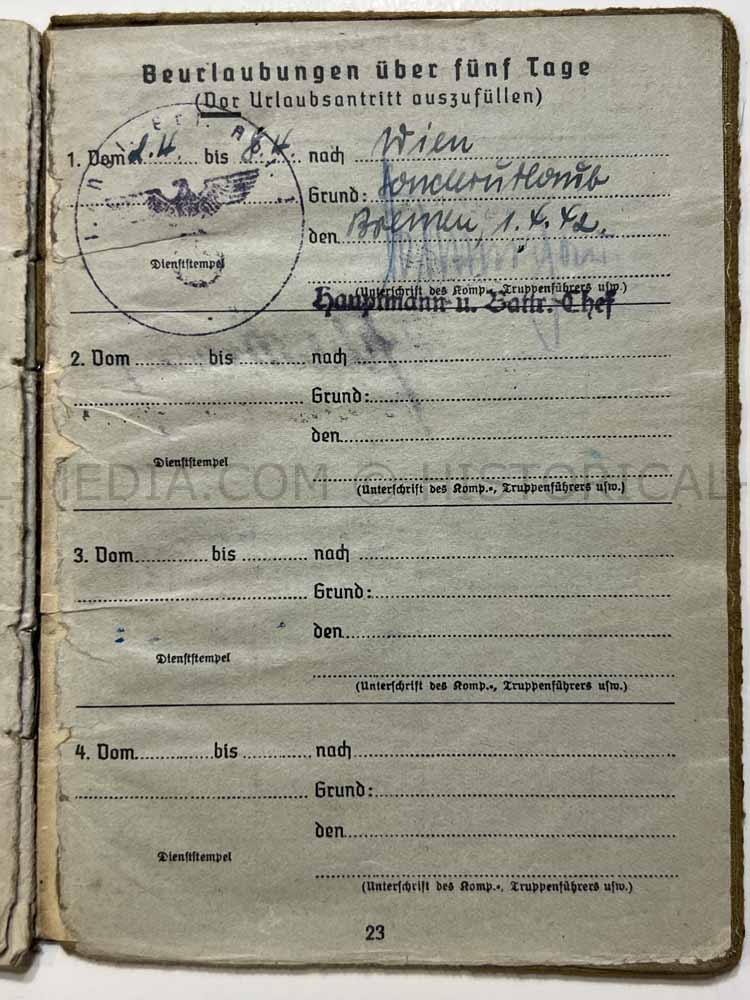 Beurlaubungen über fünf Tage
(Vor Urlaubsantritt auszufüllen)
1. Vom 2.4. bis 8.4. nach Wien
Grund: Sonderurlaub
den Bremen, 1.4.42.
Dienststempel
(Unterschrift des Komp.-, Truppenführers usw.)
Hauptmann u. Battr. Chef
2. Vom bis nach
Grund:
den
Dienststempel
MEDIA.COM © HISTORICAL-
(Unterschrift des Komp.-, Truppenführers usw.)
3. Vom bis nach
Grund:
den
Dienststempel
(Unterschrift des Komp.-, Truppenführers usw.)
4. Vom bis nach
Grund:
den
Dienststempel
(Unterschrift des Komp.-, Truppenführers usw.)
23